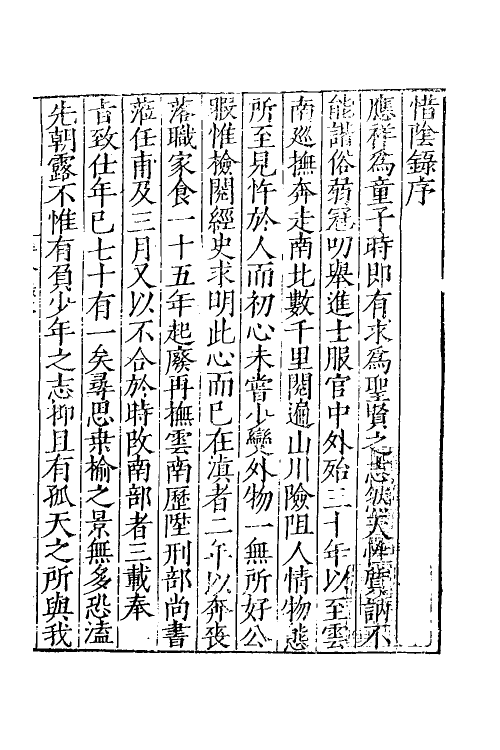 惜陰錄序
應祥為童子時即有求為聖賢之志然天性質訥不
能諧俗弱冠叨舉進士服官中外殆三十年以至雲
南巡撫奔走南北數千里閱遍山川險阻人情物態
所至見忤於人而初心未嘗少變外物一無所好公
暇惟檢閱經史求明此心而已在滇者二年以奔喪
落職家食一十五年起廢再撫雲南歷陞刑部尚書
蒞任甫及三月又以不合於時改南部者三載奉
旨致仕年已七十有一矣尋思桑榆之景無多恐溘
先朝露不惟有負少年之志抑且有孤天之所與我